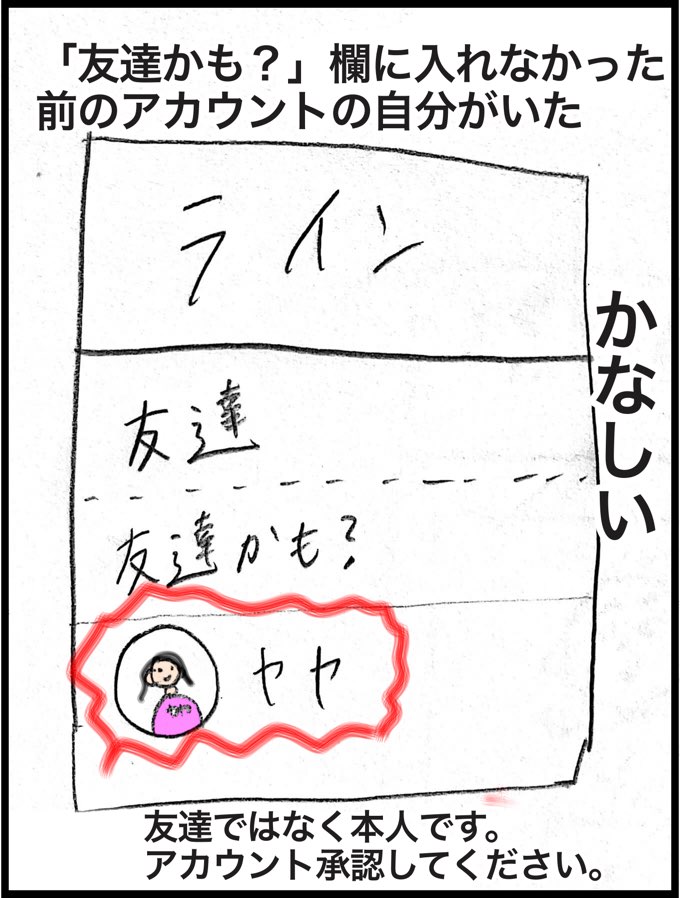 「友達かも？」欄に入れなかった
前のアカウントの自分がいた
ライン
かなしい
友達
友達かも?
ヤヤ
友達ではなく本人です。
アカウント承認してください。